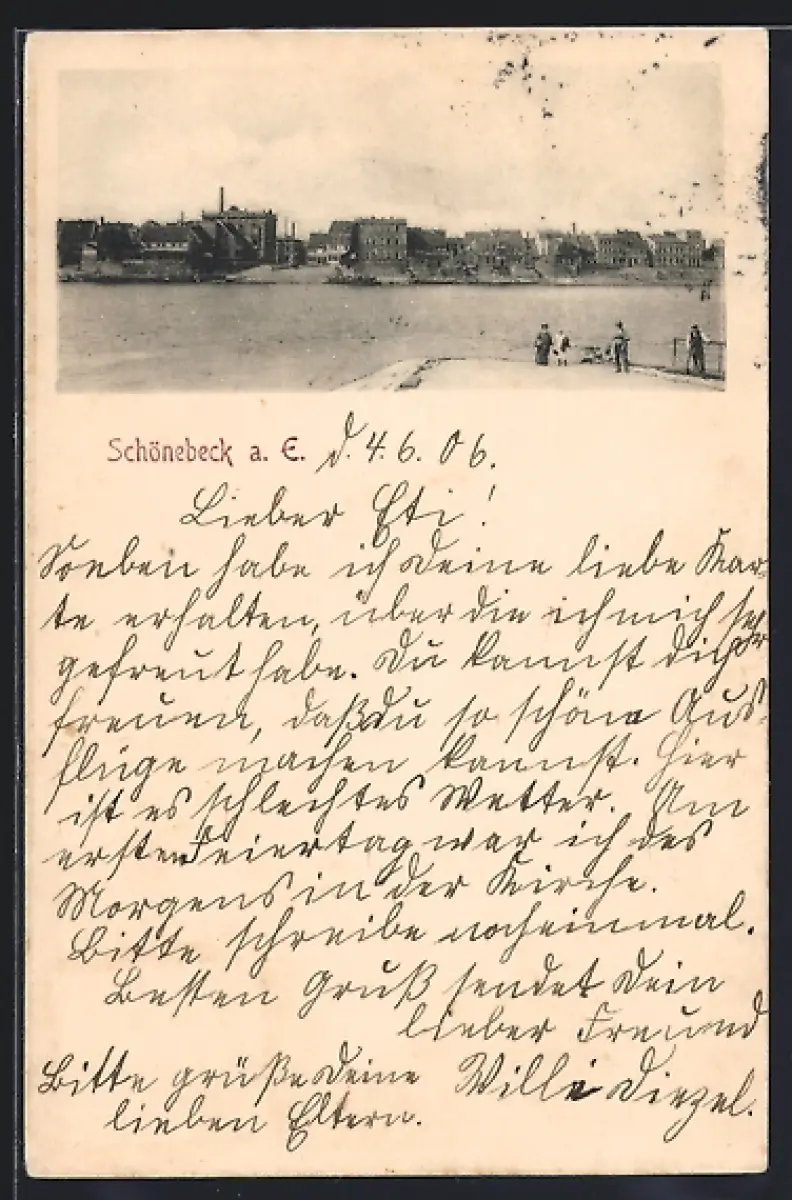 Schönebeck a. E. d. 4.6.06.
Lieber Eti!
Soeben habe ich Deine liebe Kar-
te erhalten, über die ich mich sehr
gefreut habe. Du kannst dich
freuen, daß du so schöne Aus-
flüge machen kannst. Hier
ist es schlechtes Wetter. Am
ersten Feiertag war ich des
Morgens in der Kirche.
Bitte schreibe noch einmal.
Besten Gruß sendet Dein
lieber Freund
Willi Diezel.
Bitte grüße Deine
lieben Eltern.